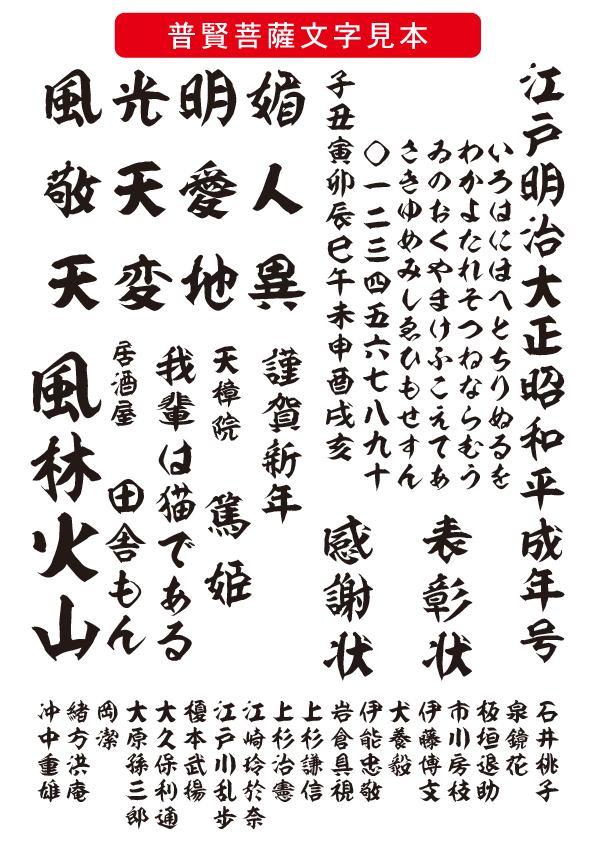 普賢菩薩文字見本
江戸明治大正昭和平成年号
いろはにほへとちりぬるを
わかよたれそつねならむう
ゐのおくやまけふこえてあ
さきゆめみしゑひもせすん
〇一二三四五六七八九十
子丑寅卯辰巳午未申酉戌亥
表彰状
感謝状
風光明媚
敬天愛人
天変地異
謹賀新年
天樟院 篤姫
我輩は猫である
居酒屋 田舎もん
風林火山
石井桃子
泉鏡花
板垣退助
市川房枝
伊藤博文
犬養毅
伊能忠敬
岩倉具視
上杉謙信
上杉治憲
江崎玲於奈
江戸川乱歩
榎本武揚
大久保利通
大原孫三郎
岡潔
緒方洪庵
沖中重雄